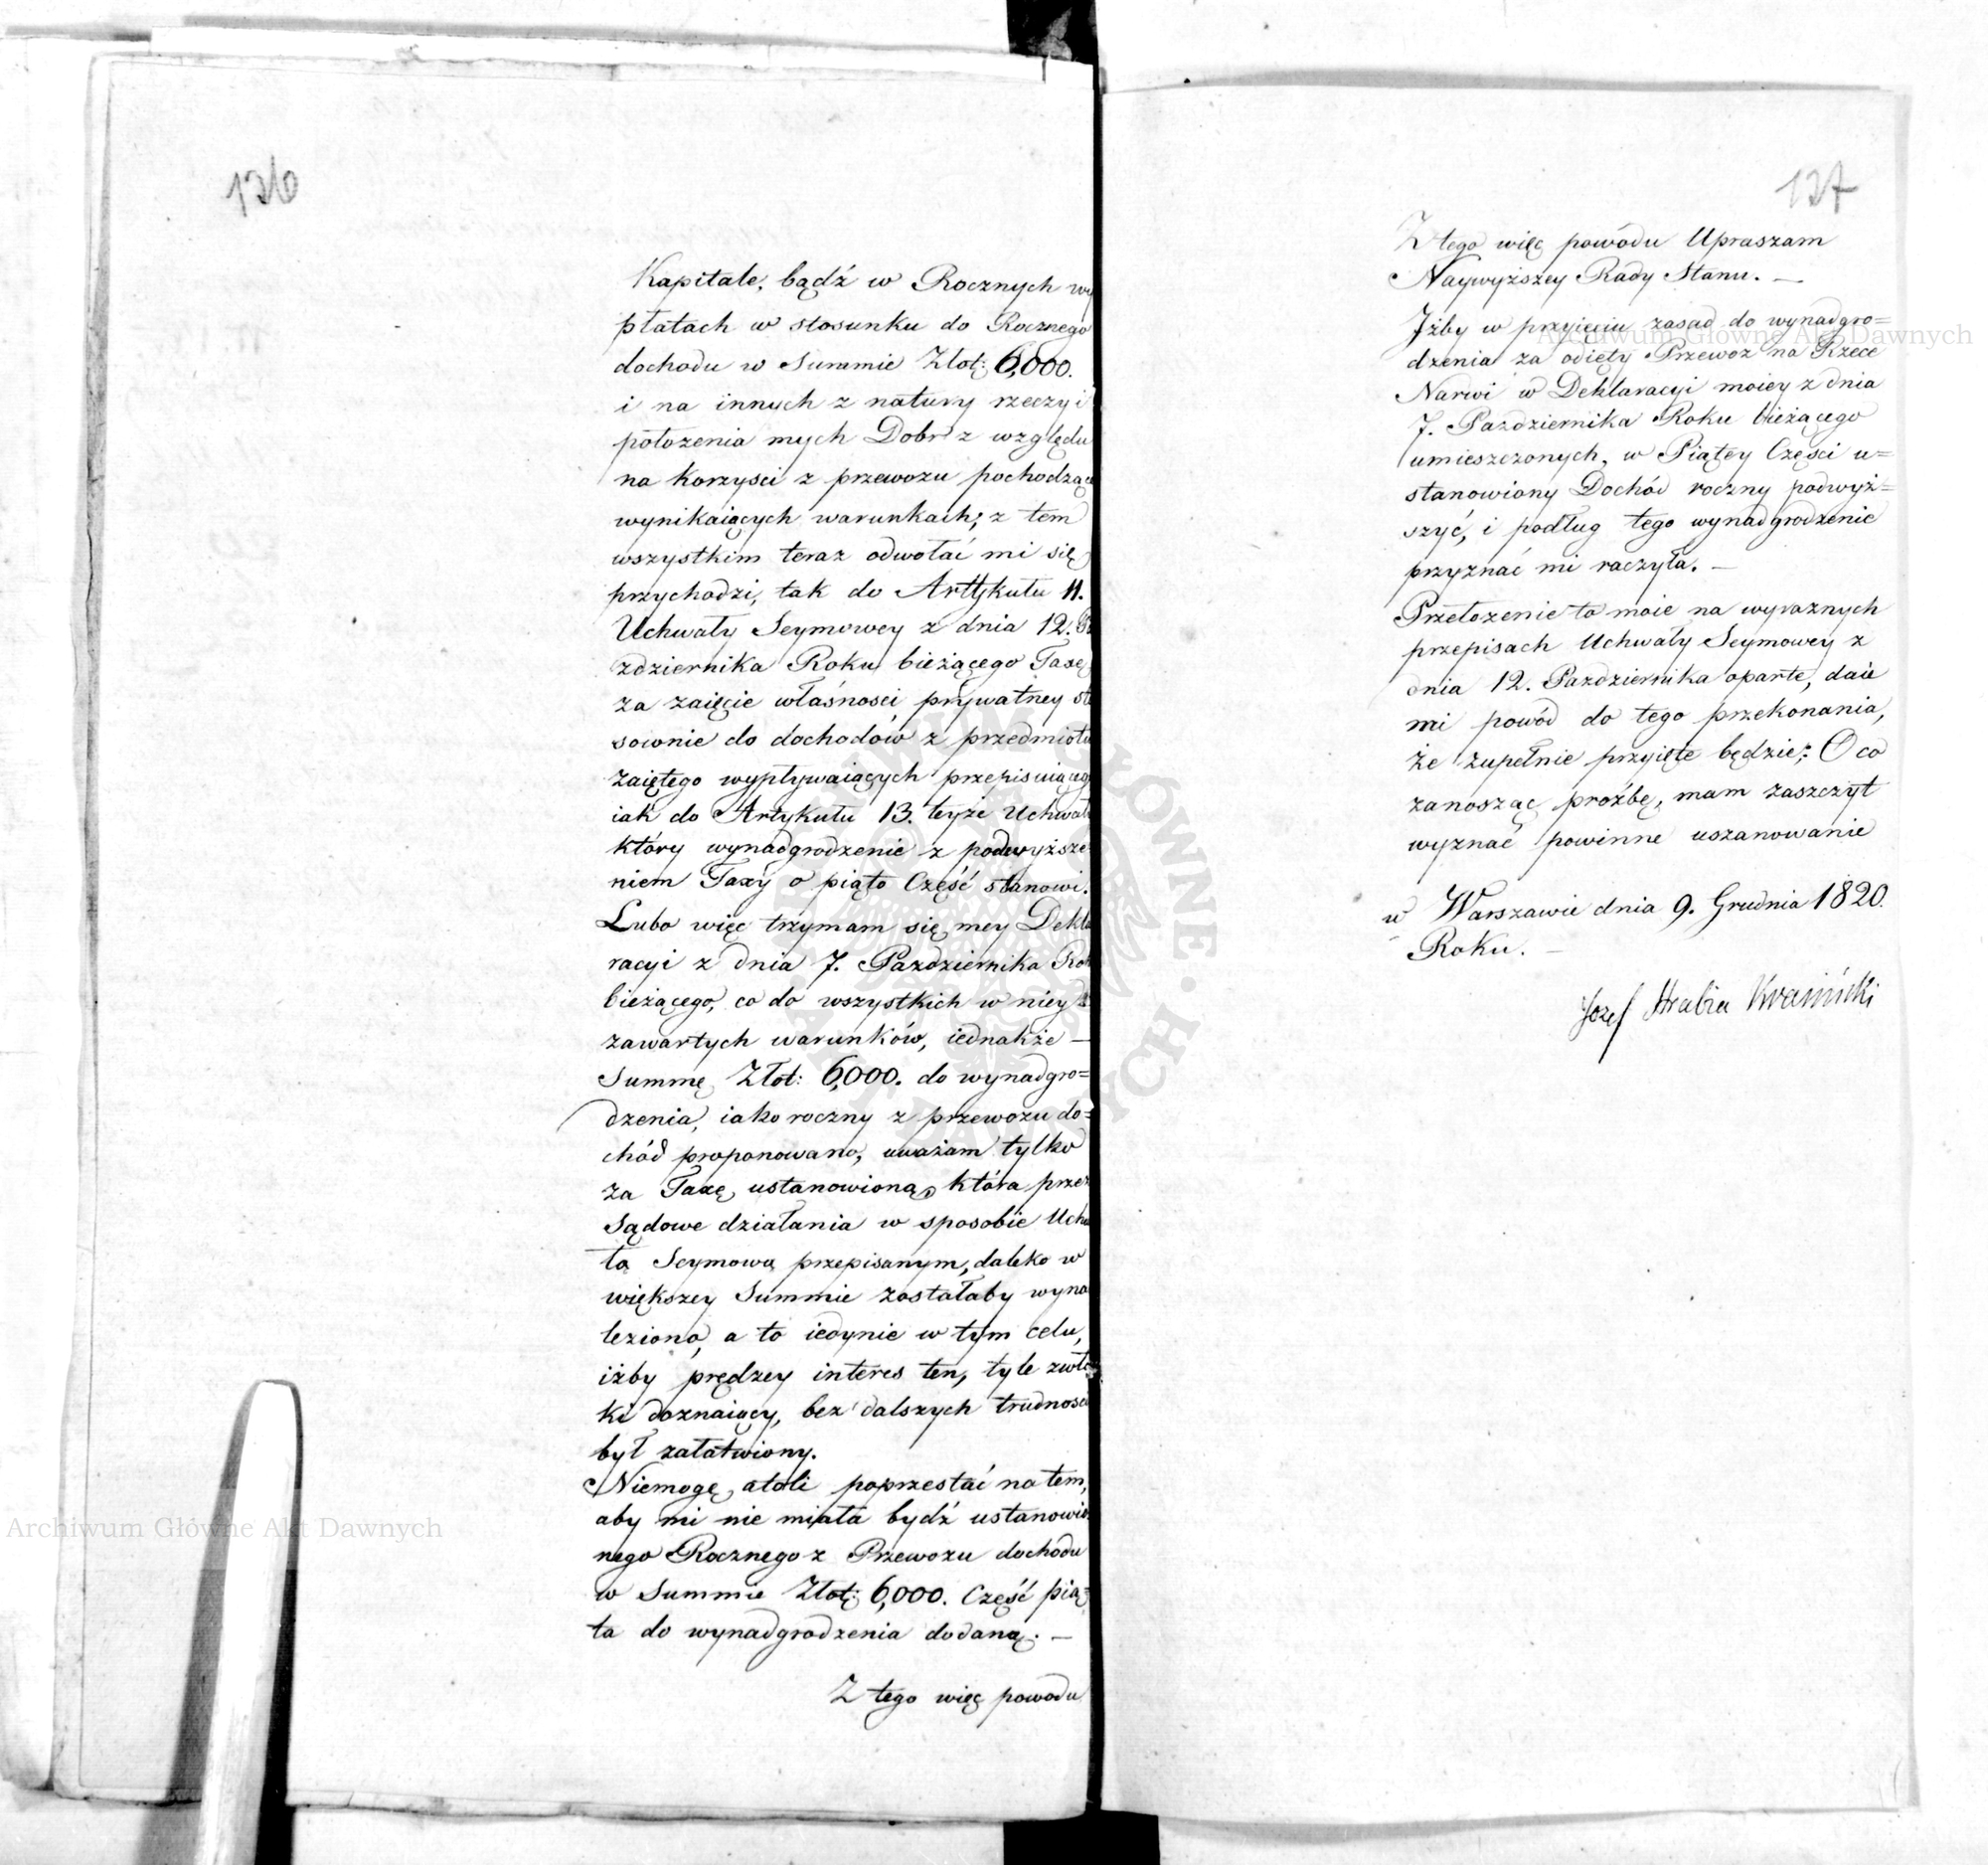 136
Kapitale, bądź w Rocznych wy
płatach w stosunku do Rocznego
dochodu w Summie Złot: 6,000.
i na innych z natury rzeczy i
położenia mych Dobr z względu
na korzysci z przewozu pochodząc
wynikaiących warunkach; z tem
wszystkim teraz odwołać mi się
przychodzi, tak do Arttykułu 11.
Uchwały Seymowey z dnia 12. Pa
zdziernika Roku bieżącego Taxę
za zaięcie własnosci prywatney sto
sownie do dochodów z przedmiotu
zaiętego wypływaiących przepisuiąceg
iak do Artykułu 13. teyże Uchwał
który wynadgrodzenie z podwyższe
niem Taxy o piąto Część stanowi.
Lubo więc trzymam się mey Dekla
racyi z dnia 7. Pazdziernika Rok
bieżącego, co do wszystkich w niey
zawartych warunków, iednakże —
Summę Złot: 6,000. do wynadgro=
dzenia, iako roczny z przewozu do=
chód proponowano, uważam tylko
za Taxę ustanowioną, która przez
Sądowe działania w sposobie Uchw
łą Seymową przepisanym, daleko w
większey Summie zostałaby wyna
leziono, a to iedynie w tym celu,
iżby prędzey interes ten, tyle zwło
ki doznaiący, bez dalszych trudnosci
był załatwiony.
Niemogę atoli poprzestać na tem,
aby mi nie miała bydź ustanowio
nego Rocznego z Przewozu dochodu
w Summie Złot: 6,000. Część pią=
ta do wynadgrodzenia dodaną. —
Z tego więc powodu
137
Z tego więc powodu Upraszam
Naywyższey Rady Stanu. —
Jżby w przyięciu zasad do wynadgro=
dzenia za odięty Przewoz na Rzece
Narwi w Deklaracyi moiey z dnia
7. Pazdziernika Roku bieżącego
umieszczonych, w Piątey Części u=
stanowiony Dochód roczny podwyż=
szyć, i podług tego wynadgrodzenie
przyznać mi raczyła. —
Przełozenie to moie na wyraznych
przepisach Uchwały Seymowey z
dnia 12. Pazdziernika oparte, daie
mi powód do tego przekonania,
że zupełnie przyięte będzie; O co
zanosząc prożbę, mam zaszczyt
wyznać powinne uszanowanie
w Warszawie dnia 9. Grudnia 1820.
Roku. —
Jozef Hrabia Krasiński
Archiwum Główne Akt Dawnych
Archiwum Główne Akt Dawnych